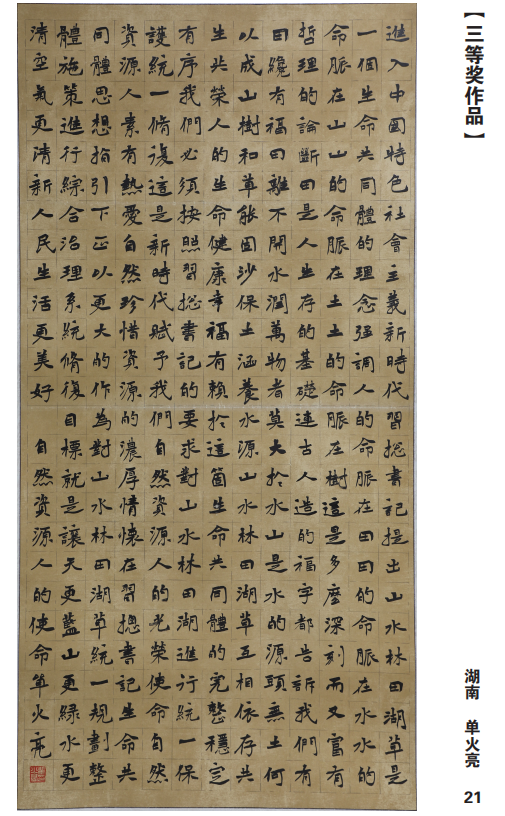 【三等奖作品】
進入中國特色社會主義新時代習総書記提出山水林田湖草是
一個生命共同體的理念强調人的命脈在田田的命脈在水水的
命脈在山山的命脈在土土的命脈在樹這是多麼深刻而又富有
哲理的論斷田是人生存的基礎連古人造的福字都告訴我們有
田纔有福田離不開水潤萬物者莫大於水山是水的源頭無土何
以成山樹和草能固沙保土涵養水源山水林田湖草互相依存共
生共榮人的生命健康幸福有賴於這箇生命共同體的完整穩定
有序我們必須按照習総書記的要求對山水林田湖進行統一保
護統一脩復這是新時代賦予我們自然資源人的光榮使命自然
資源人素有熱愛自然珍惜資源的濃厚情懷在習摠書記生命共
同體思想指引下正以更大的作為對山水林田湖草統一規劃整
體施策進行綜合治理系統脩復目標就是讓天更藍山更綠水更
清空氣更清新人民生活更美好 自然資源人的使命单火亮
湖南 单火亮
21